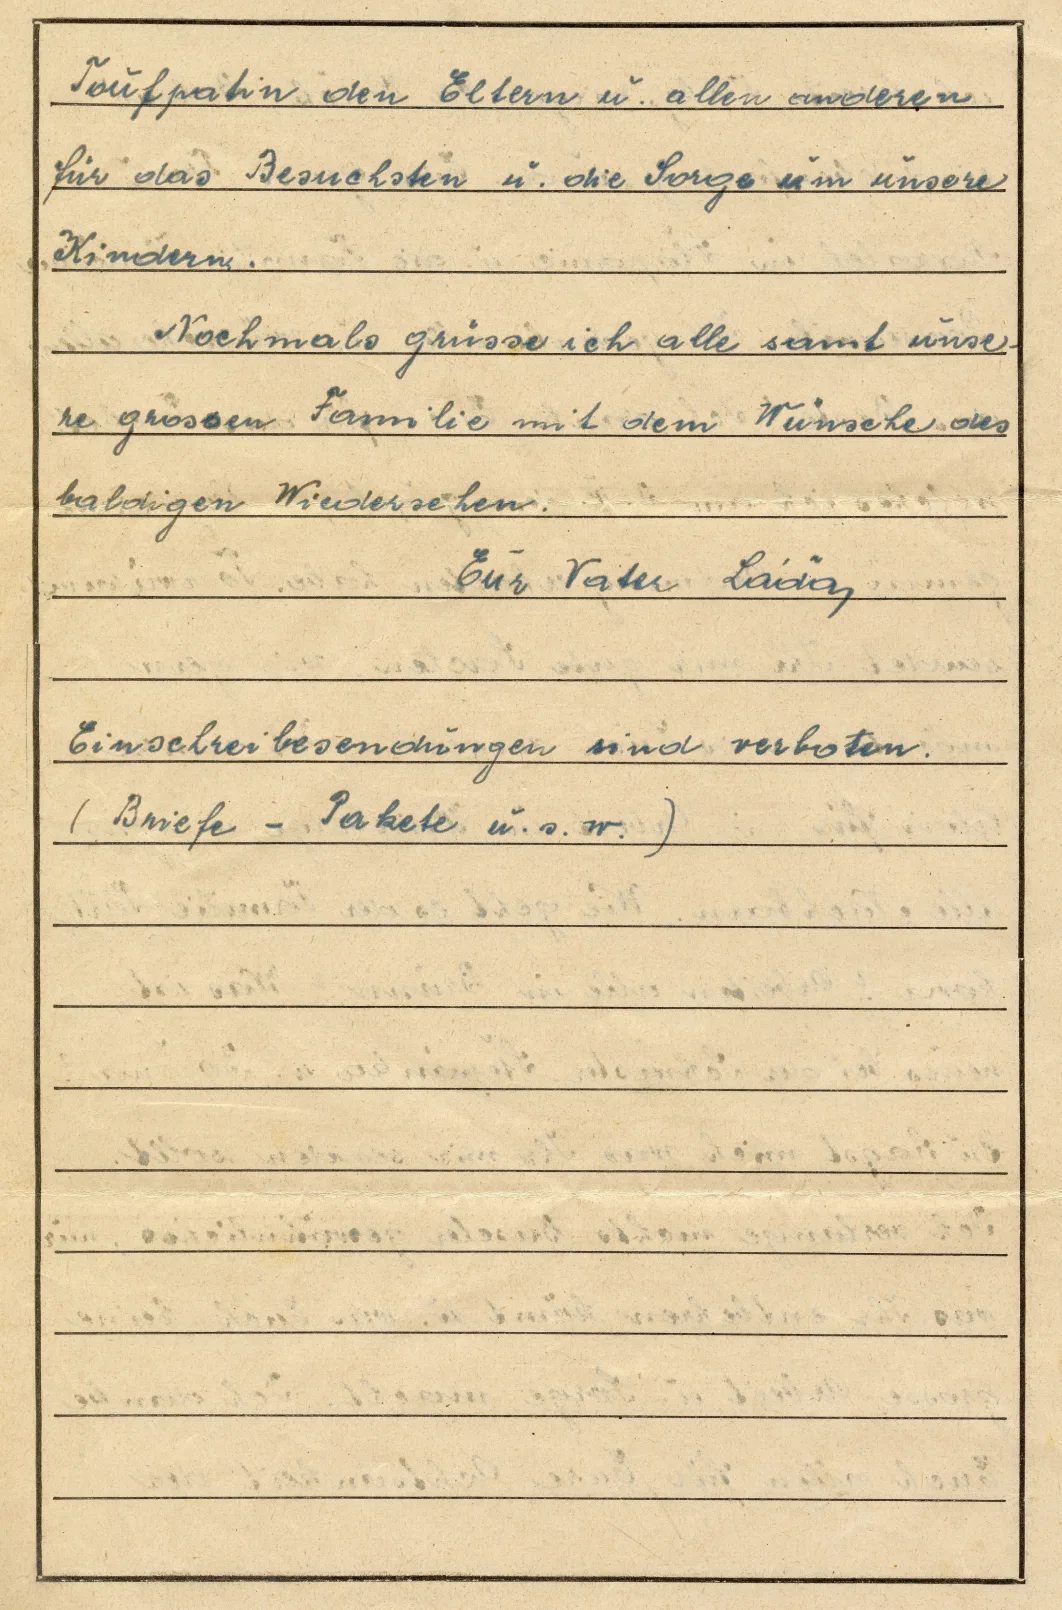 Taufpatin den Eltern u. allen anderen
für das Besuchsten u. die Sorge um unsere
Kindern.
Nochmals grüsse ich alle samt unse-
re grossen Familie mit dem Wunsche des
baldigen Wiedersehen.
Eur Vater Láďa
Einschreibesendungen sind verboten.
( Briefe - Pakete u. s. w. )